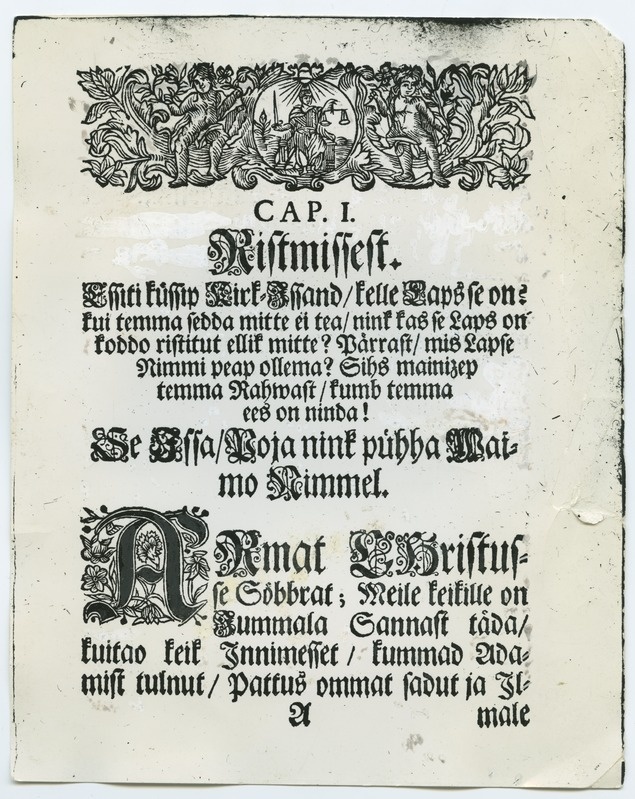 CAP. I.
Ristmissest.
Essiti küssip Kirk-Issand/kelle Laps se on?
kui temma sedda mitte ei tea/ nink kas se Laps on
koddo ristitut ellik mitte? Pärrast/ mis Lapse
Nimmi peap ollema? Sihs mainizep
temma Rahwast/ kumb temma
ees on ninda!
Se Issa/Poja nink pühha Wai-
mo Nimmel.
ARmat CHristus-
se Söbbrat; Meile keikille on
Jummala Sannast täda/
kuitao keik Innimesset / kummad Ada-
mist tulnut/ Pattus ommat sadut ja Il-
A male